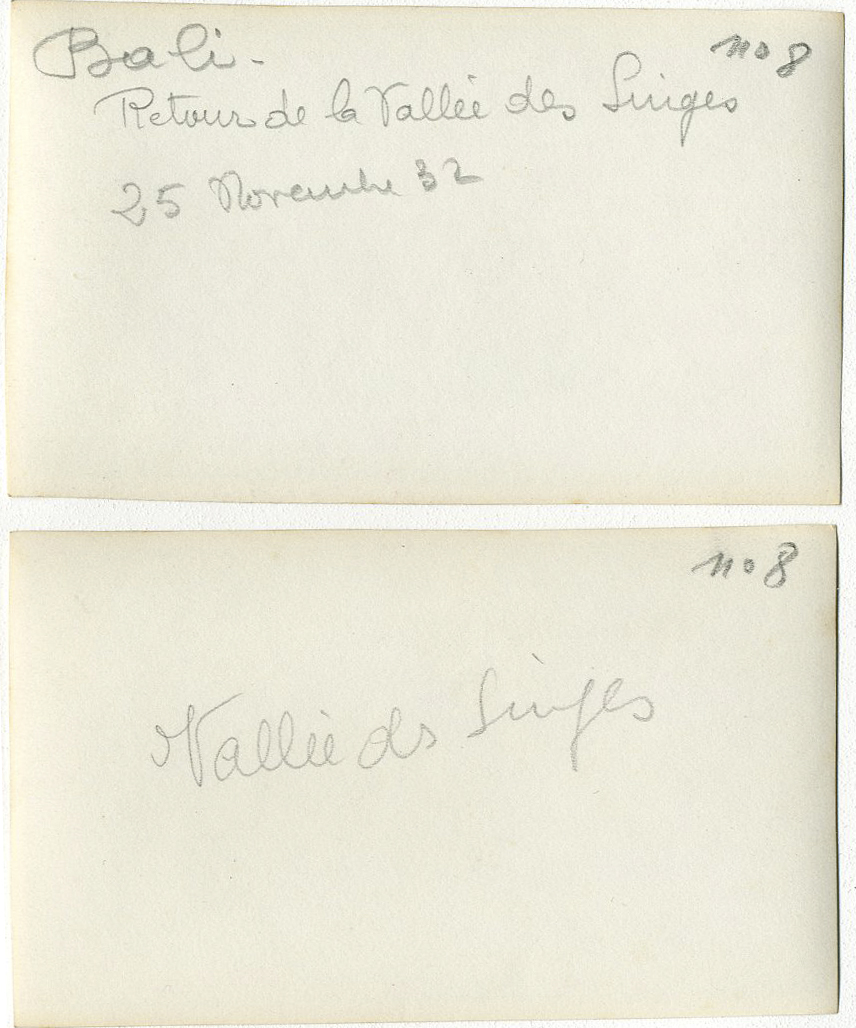 Bali -
no 8
Retour de la Vallée des Singes
25 Novembre 32
no 8
Vallée des Singes